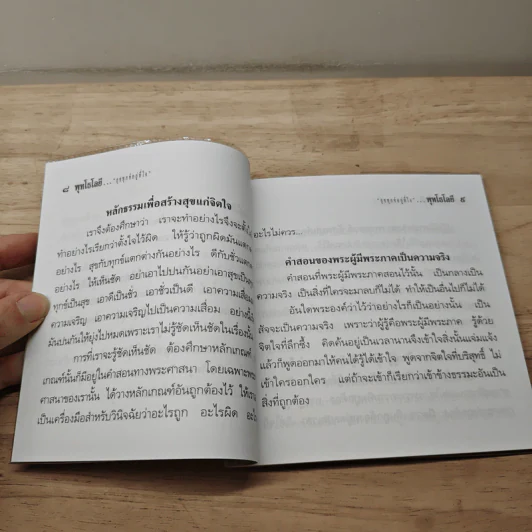 ๘ พุทโธโลยี....“จุดจุดจ่ออยู่ที่ใจ”
หลักธรรมเพื่อสร้างสุขแก่จิตใจ
เราจึงต้องศึกษาว่า เราจะทำอย่างไรจึงจะตั้งใจ
ทำอย่างไรเรียกว่าตั้งใจไว้ผิด ให้รู้ว่าถูกผิดมันแตก
อย่างไร สุขกับทุกข์แตกต่างกันอย่างไร ดีกับชั่วแตก
อย่างไร ให้เห็นชัด อย่าเอาไปปนกันอย่าเอาสุขเป็น
ทุกข์เป็นสุข เอาดีเป็นชั่ว เอาชั่วเป็นดี เอาความเสื่อม
ความเจริญ เอาความเจริญไปเป็นความเสื่อม อย่างนี้
มันปนกันให้ยุ่งไปหมดเพราะเราไม่รู้ชัดเห็นชัดในเรื่อง
การที่เราจะรู้ชัดเห็นชัด ต้องศึกษาหลักเกณฑ์
เกณฑ์นั้นก็มีอยู่ในคำสอนทางพระศาสนา โดยเฉพาะ
ศาสนาของเรานั้น ได้วางหลักเกณฑ์อันถูกต้องไว้ ให้เรา
เป็นเครื่องมือสำหรับวินิจฉัยว่าอะไรถูก อะไรผิด
...พุทโธโลยี ๙
อะไรไม่ควร...
คำสอนของพระผู้มีพระภาคเป็นความจริง
คำสอนที่พระผู้มีพระภาคสอนไว้นั้น เป็นกลางเป็น
ความจริง เป็นสิ่งที่ใครจะมาลบก็ไม่ได้ ทำให้เป็นอื่นไปก็ไม่ได้
อันใดพระองค์ว่าไว้ว่าอย่างไรก็เป็นอย่างนั้น เป็น
สัจจะเป็นความจริง เพราะว่าผู้รู้คือพระผู้มีพระภาค รู้ด้วย
จิตใจที่ลึกซึ้ง คิดค้นอยู่เป็นเวลานานจึงเข้าใจสิ่งนั้นแจ่มแจ้ง
แล้วก็พูดออกมาให้คนได้รู้ได้เข้าใจ พูดจากจิตใจที่บริสุทธิ์ ไม่
เข้าใครออกใคร แต่ถ้าจะเข้าก็เรียกว่าเข้าข้างธรรมะอันเป็น
สิ่งที่ถูกต้อง